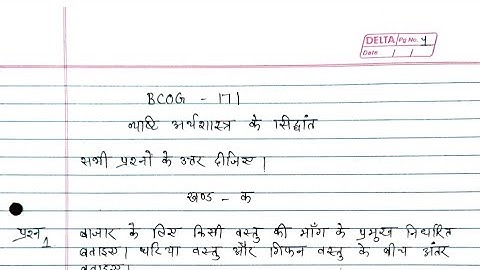 DELTA Pg No. 4
Date / /
BCOG - 171
व्यष्टि अर्थशास्त्र के सिद्धांत
सभी प्रश्नों के उत्तर दीजिए।
खण्ड - क
प्रश्न 1 बाजार के लिए किसी वस्तु की माँग के प्रमुख निर्धारित
बताइए। घटिया वस्तु और गिफन वस्तु के बीच अंतर
बताइए।